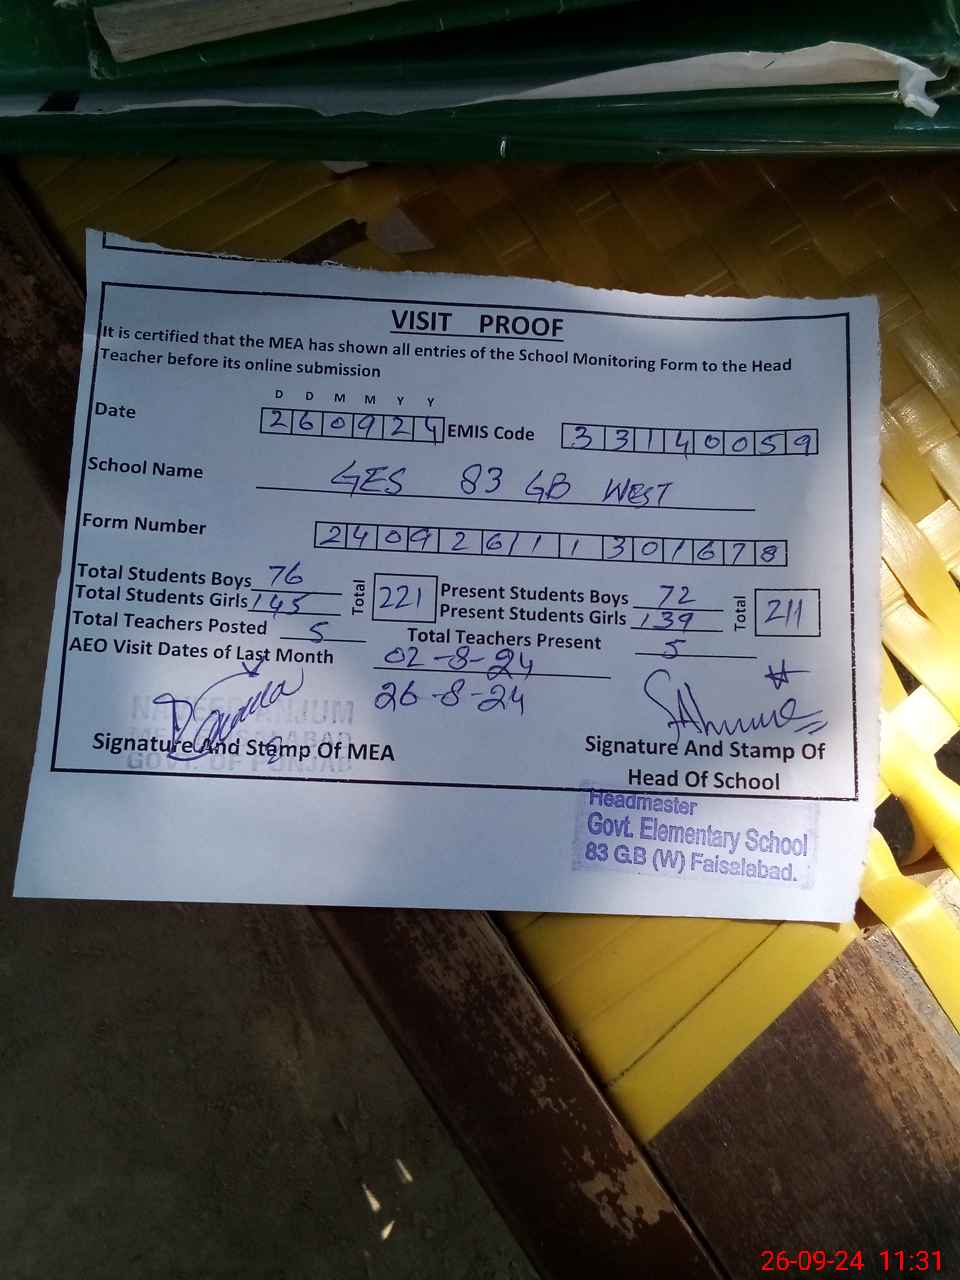 VISIT PROOF
It is certified that the MEA has shown all entries of the School Monitoring Form to the Head
Teacher before its online submission
D D M M Y Y
Date 260924 EMIS Code 33140059
School Name GES 83 GB WEST
Form Number 240926111301678
Total Students Boys 76 Total 221 Present Students Boys 72 Total 211
Total Students Girls 145 Present Students Girls 139
Total Teachers Posted 5 Total Teachers Present 5
AEO Visit Dates of Last Month 02-8-24
26-8-24
Signature And Stamp Of MEA
GOVT. OF PUNJAB
Signature And Stamp Of
Head Of School
Headmaster
Govt. Elementary School
83 G.B (W) Faisalabad.
26-09-24 11:31